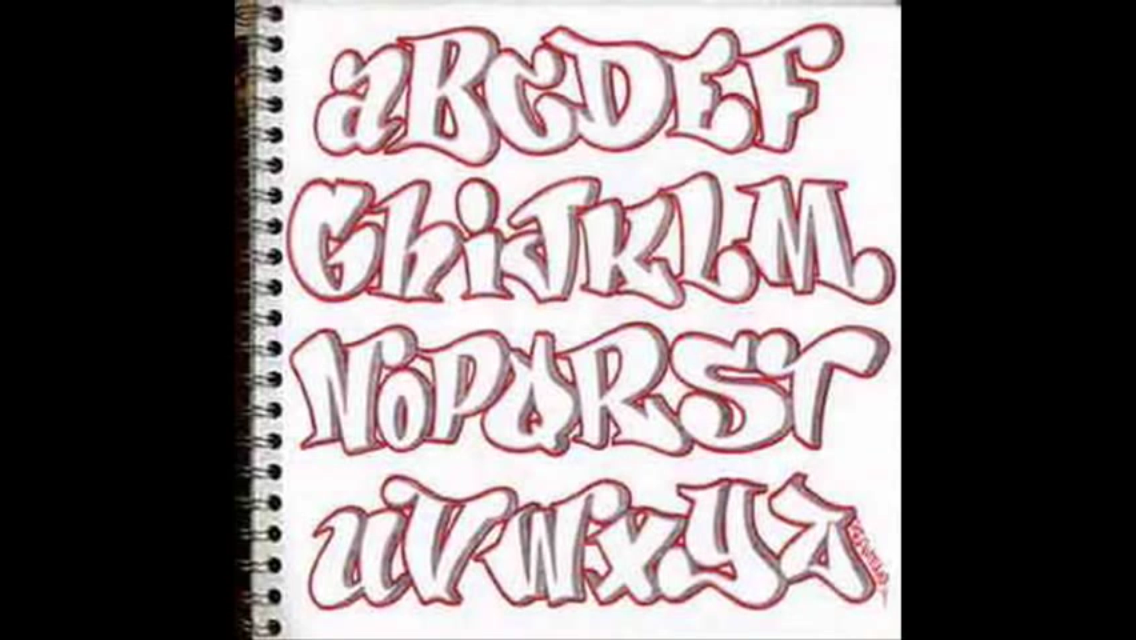 aBCDEF
GhiJKLM
NoPQRST
uVWXYZ